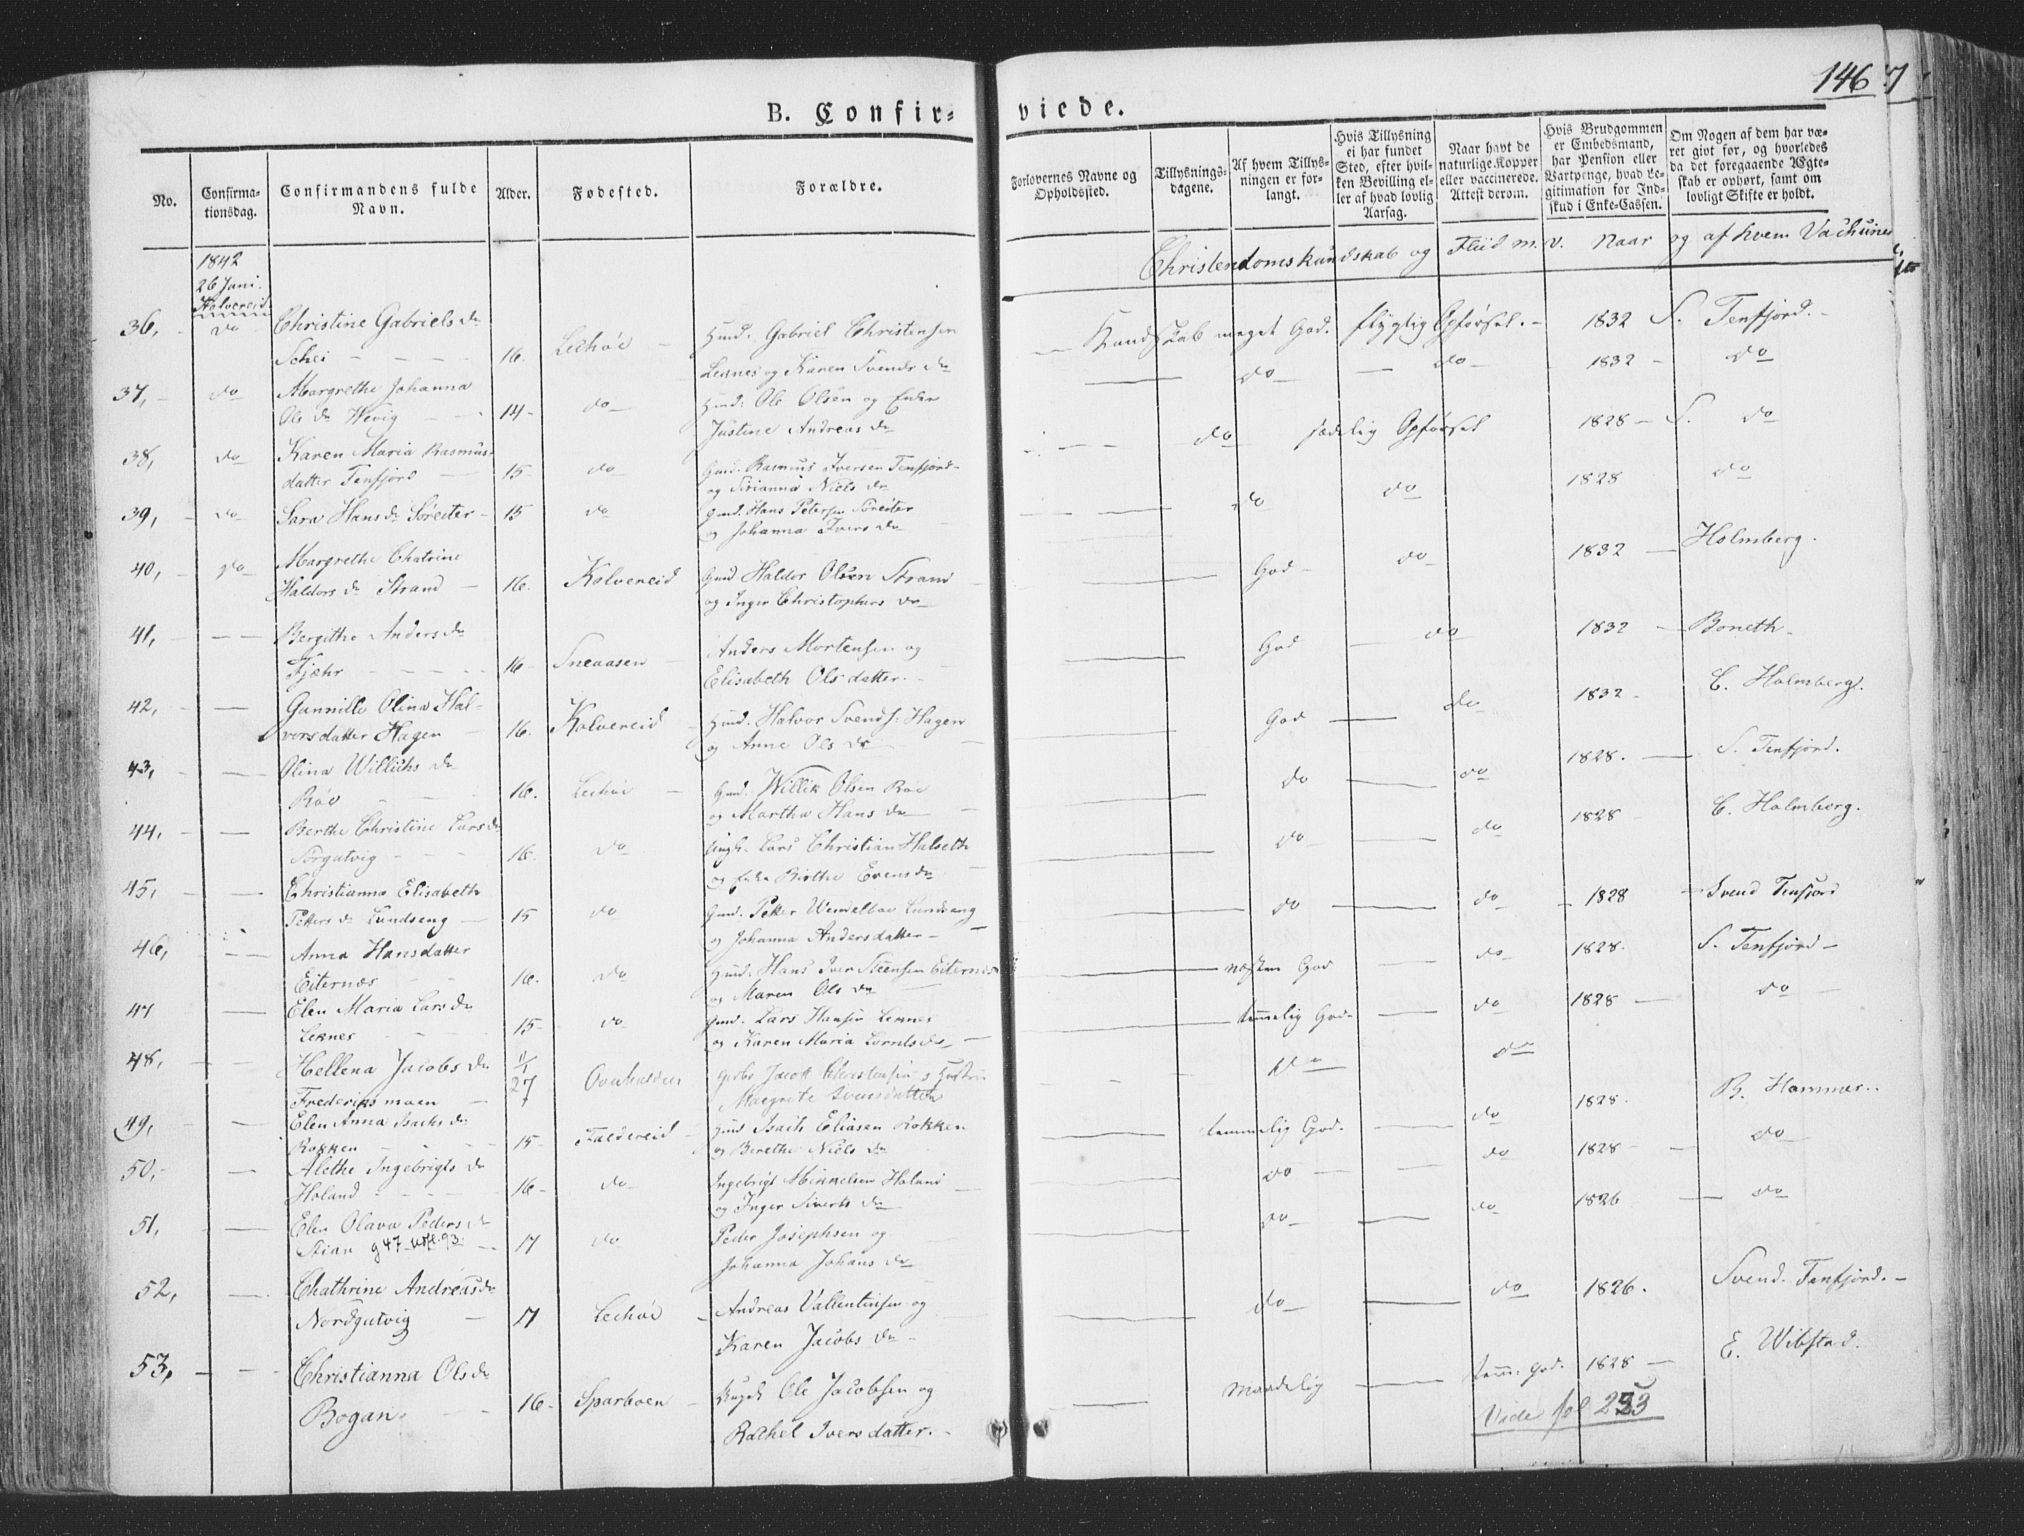 146
7
B. Confir=
viede.
No.
Confirma-
tionsdag.
Confirmandens fulde
Navn.
Alder.
Fødested.
Forældre.
Forlovernes Navne og
Opholdssted.
Tillysnings-
dagene.
Af hvem Tillys-
ningen er for-
langt.
Hvis Tillysning
ei har fundet
Sted, efter hvil-
ken Bevilling el-
ler af hvad lovlig
Aarsag.
Naar havt de
naturlige Kopper
eller vaccinerede.
Attest derom.
Hvis Brudgommen
er Embedsmand,
har Pension eller
Vartpenge, hvad Le-
gitimation for Ind-
skud i Enke-Cassen.
Om Nogen af dem har væ-
ret givt før, og hvorledes
da det foregaaende Ægte-
skab er ophørt, samt om
lovligt Skifte er holdt.
Christendomskundskab og Fliid m. v. Naar og af hvem
1842
26 Juni
Kolvereid
36, do Christine Gabriels dr
Schei 16. Lechøe
Gmd. Gabriel Christensen
Leknes og Karen Svends dr
Kundskab meget God. flygtig Opførsel. 1832 S. Tenfjord.
37, do Margrethe Johanna
Ole dr Wevig 14 do
Gmd: Ole Olsen og
Justine Andreas dr
do do 1832 do
38, do Karen Maria Rasmus-
datter Tenfjord 15 do
Gmd. Rasmus Iversen Tenfjord
og Niels dr
do sædelig Opførsel 1828 S. do
39, do Sara Hans dr 15 do
Gmd. Hans Petersen
og Johanna Ivers dr
do do 1828 do
40, do Margrethe Chatrine
Haldors dr Strand 16. Kolvereid
Gmd Haldor Olsen Strand
og Inger Christophers dr
God do 1832 Holmberg.
41, Bergithe Anders dr
Fjæhr 16 Sneaasen
Anders Mortensen og
Elisabeth Ols datter.
God do 1832 Boneth
42, Gunnille Olina Hal-
vorsdatter Hagen 16. Kolvereid
Gmd. Halvor Svends: Hagen
og Anne Ols dr
God do 1832 C. Holmberg.
43, Olina Willichs dr
Røe 16. Lechøe
Gmd. Willik Olsen Røe
og Martha Hans dr
do do 1828. S. Tenfjord.
44, Berthe Christine Lars dr
Sørgutvig 16. do
Ungk. Lars Christian Halseth
og Birthe Evens dr
do do 1828 C. Holmberg.
45, Christianna Elisabeth
Peters dr Lundseng 15 do
Gmd. Peter Lundseng
og Johanna Andersdatter
do do 1828 Svend Tenfjord
46, Anna Hansdatter
Eiternæs 16. do
Gmd. Hans Iver Eiternæs
og Maren Ols dr
næsten God do 1828. S. Tenfjord
47 Elen Maria Lars dr
Leknes 15 do
Gmd. Lars Hansen Leknes
og Karen Maria
temmelig God. do 1828 do
48, Hellena Jacobs dr
Frederiksmoen 11/1 27 Overhalden
Jacob Christensen
Margrete Iversdatter
do do
49, Elen Anna Isachs dr
Rokken 15 Foldereid
Gmd Isach Eliasen Rokken
og Berethe Niels dr
temmelig God. do 1828. B. Hammer.
50, Alethe Ingebrigts dr
Holand 16 do
Ingebrigt Mikkelsen Holand
og Inger Siverts dr
do do 1828 do
51, Elen Olava Peders dr
Stian g 47 93 17 do
Peder Josephsen og
Johanna Johans dr
do do 1826 do
52, Chathrine Andreas dr
Nordgutvig 17 Lechøe
Andreas Vallentinsen og
Karen Jacobs dr
do do 1826. Svend. Tenfjord.
53, Christianna Ols dr
Bogan 16 Sparboen
Ole Jacobsen og
Rachel Iversdatter.
Maadelig tem. God. 1828 E. Wibstad.
Vide fol 253